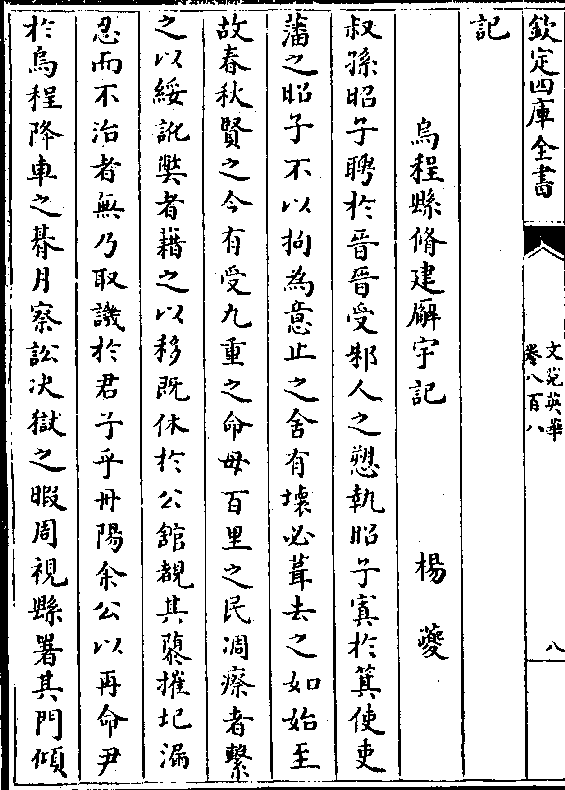 欽定四庫全書
文苑英華
卷八百八
八
記
烏程縣脩建廨宇記 楊夔
叔孫昭子聘於晉晉受邾人之愬執昭子寘於箕使吏
藩之昭子不以拘為意止之舍有壊必葺去之如始至
故春秋賢之今有受九重之命毋百里之民凋瘵者繫
之以綏訛獘者藉之以移既休於公舘覩其隳摧圮漏
忍而不治者無乃取譏於君子乎丹陽余公以再命尹
於烏程降車之朞月察訟决獄之暇周視縣署其門傾